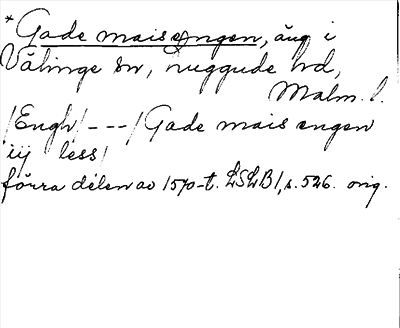 *Gade maisengen, äng i
Välinge sn, Luggude hd,
Malm. l.
/Engh/ --- / Gade mais engen
iij less/
förra delen av 1570-t. LSLB I, s. 526. orig.